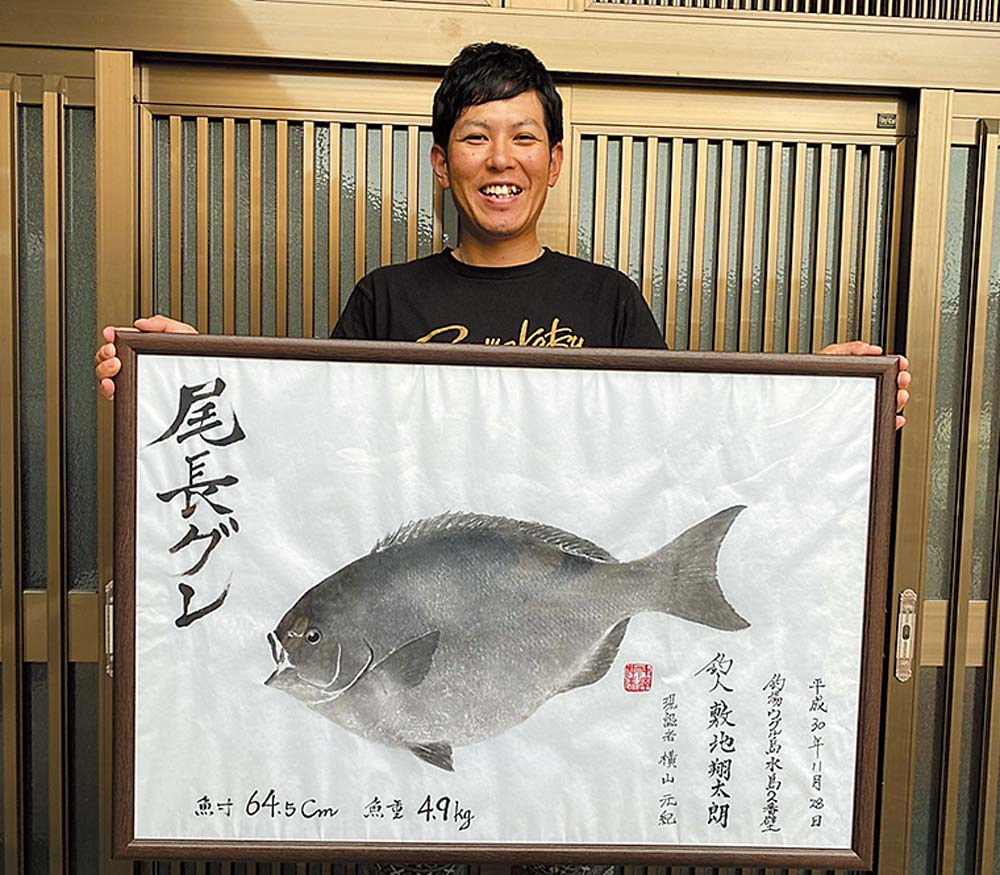 尾長グレ
平成30年11月28日
釣場ウグル島水島2番壁
釣人 敷地翔太朗
現認者 横山 元紀
魚寸 64.5cm 魚重 4.9kg